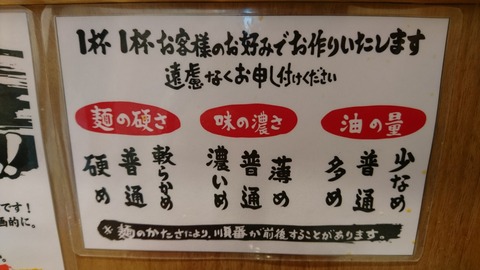 1杯1杯お客様のお好みでお作りいたします
遠慮なくお申し付けください
麺の硬さ
硬め
普通
軟らかめ
味の濃さ
濃いめ
普通
薄め
油の量
多め
普通
少なめ
※麺のかたさにより、順番が前後することがあります。
!!
です!
画的に。